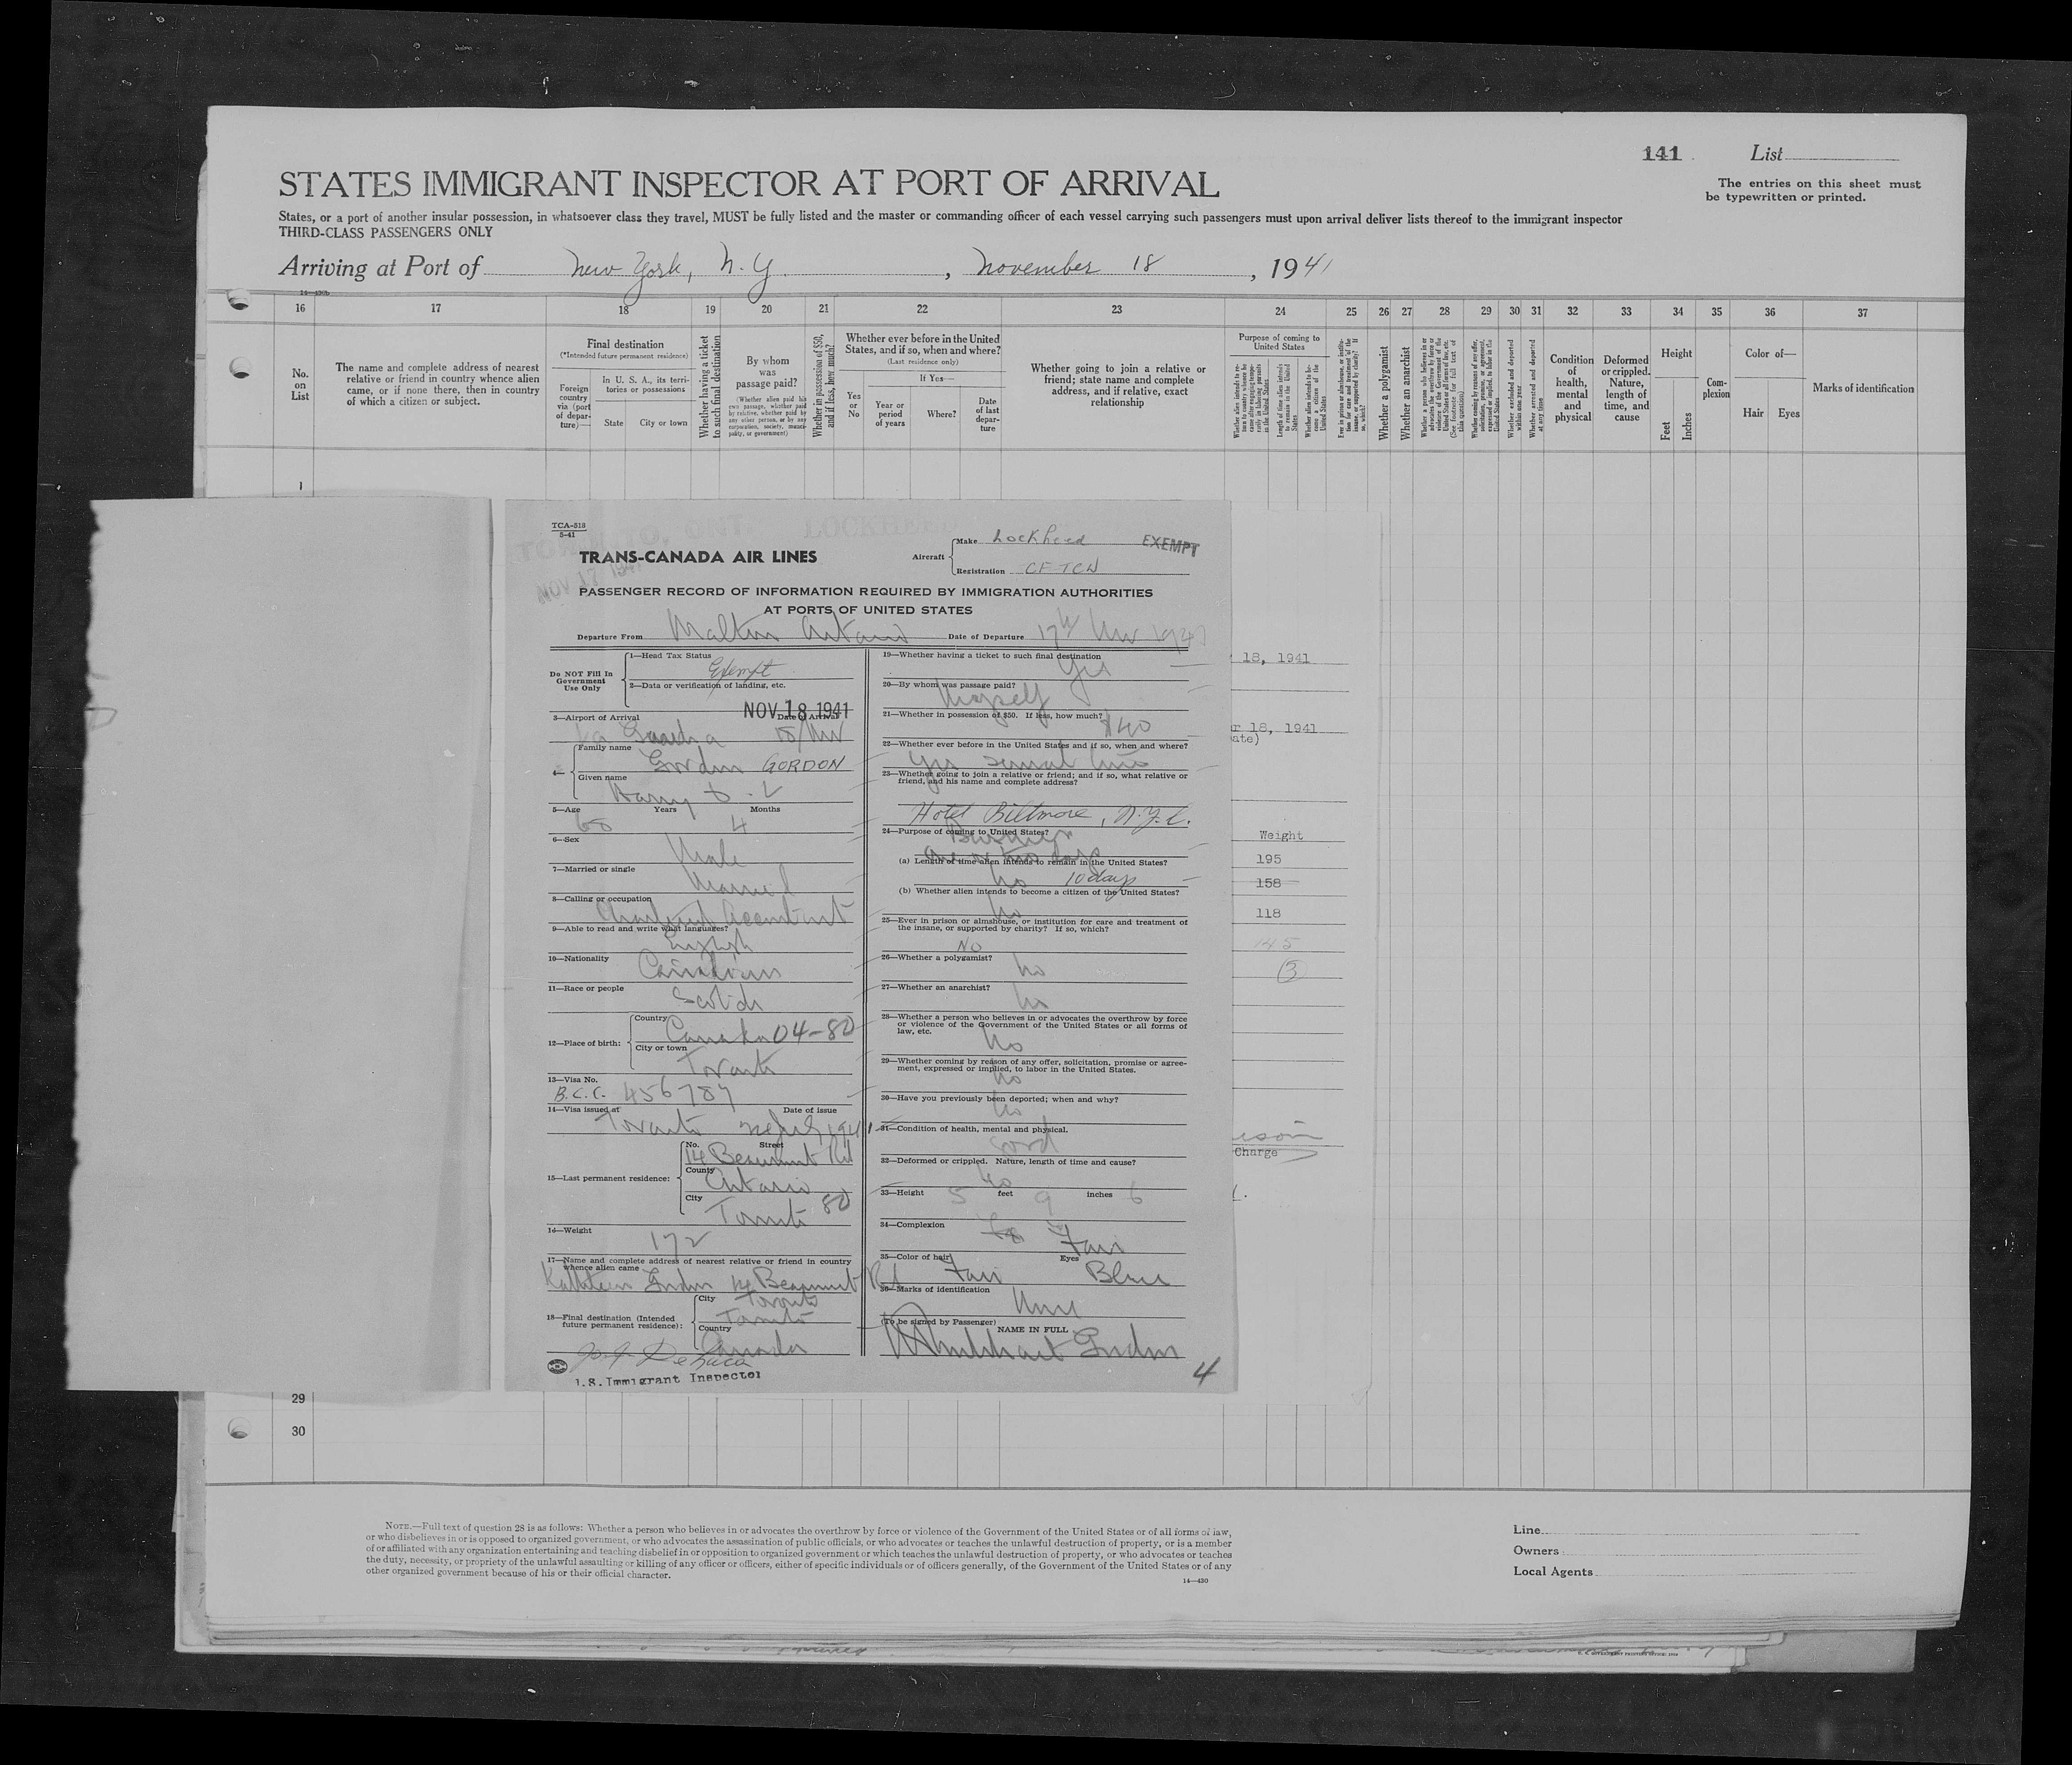 141 List
STATES IMMIGRANT INSPECTOR AT PORT OF ARRIVAL
The entries on this sheet must
be typewritten or printed.
States, or a port of another insular possession, in whatsoever class they travel, MUST be fully listed and the master or commanding officer of each vessel carrying such passengers must upon arrival deliver lists thereof to the immigrant inspector
THIRD-CLASS PASSENGERS ONLY
Arriving at Port of New York, N. Y. , November 18 , 1941
16 17 18 19 20 21 22 23 24 25 26 27 28 29 30 31 32 33 34 35 36 37
No.
on
List
The name and complete address of nearest
relative or friend in country whence alien
came, or if none there, then in country
of which a citizen or subject.
Final destination
(*Intended future permanent residence)
Foreign
country
via (port
of depar-
ture)—
In U. S. A., its terri-
tories or possessions
State City or town
Whether having a ticket
to such final destination
By whom
was
passage paid?
(Whether alien paid his
own passage, whether paid
by relative, whether paid by
any other person, or by any
corporation, society, munici-
pality, or government)
Whether in possession of $50,
and if less, how much?
Whether ever before in the United
States, and if so, when and where?
(Last residence only)
Yes
or
No
If Yes—
Year or
period
of years
Where?
Date
of last
depar-
ture
Whether going to join a relative or
friend; state name and complete
address, and if relative, exact
relationship
Purpose of coming to
United States
Whether a polygamist
Whether an anarchist
Condition
of
health,
mental
and
physical
Deformed
or crippled.
Nature,
length of
time, and
cause
Height
Feet
Inches
Com-
plexion
Color of—
Hair Eyes
Marks of identification
1
TCA-518
5-41
TRANS-CANADA AIR LINES
Aircraft
Make Lockheed
EXEMPT
Registration CF TCW
NOV 17 1941
PASSENGER RECORD OF INFORMATION REQUIRED BY IMMIGRATION AUTHORITIES
AT PORTS OF UNITED STATES
Departure From Malton Ontario Date of Departure 17th Nov 1941
Do NOT Fill In
Government
Use Only
1—Head Tax Status
Exempt
2—Data or verification of landing, etc.
NOV 18 1941
3—Airport of Arrival Date of Arrival
La Guardia 18/Nov
4—
Family name
Gordon GORDON
Given name
5—Age Years Months
60 4
6—Sex
Male
7—Married or single
Married
8—Calling or occupation
Chartered Accountant
9—Able to read and write what languages?
English
10—Nationality
Canadian
11—Race or people
Scotch
12—Place of birth:
Country
Canada 04-80
City or town
Toronto
13—Visa No.
B.C.C. 456787
14—Visa issued at Date of issue
Toronto 1941
15—Last permanent residence:
No. Street
14 Beaumont Rd
County
Ontario
City
Toronto 80
16—Weight
172
17—Name and complete address of nearest relative or friend in country
whence alien came
Kathleen Gordon 14 Beaumont Rd
18—Final destination (Intended
future permanent residence):
City Toronto
Toronto
Country
Canada
U.S. Immigrant Inspector
19—Whether having a ticket to such final destination
Yes
20—By whom was passage paid?
Myself
21—Whether in possession of $50. If less, how much?
$40
22—Whether ever before in the United States and if so, when and where?
Yes several times
23—Whether going to join a relative or friend; and if so, what relative or
friend, and his name and complete address?
Hotel Biltmore, N.Y.C.
24—Purpose of coming to United States?
Business
One or two days
(a) Length of time alien intends to remain in the United States?
No 10 days
(b) Whether alien intends to become a citizen of the United States?
No
25—Ever in prison or almshouse, or institution for care and treatment of
the insane, or supported by charity? If so, which?
No
26—Whether a polygamist?
No
27—Whether an anarchist?
No
28—Whether a person who believes in or advocates the overthrow by force
or violence of the Government of the United States or all forms of
law, etc.
No
29—Whether coming by reason of any offer, solicitation, promise or agree-
ment, expressed or implied, to labor in the United States.
No
30—Have you previously been deported; when and why?
No
31—Condition of health, mental and physical.
Good
32—Deformed or crippled. Nature, length of time and cause?
No
33—Height 5 feet 9 inches 6
34—Complexion
Fair
35—Color of hair Eyes
Fair Blue
36—Marks of identification
None
(To be signed by Passenger)
NAME IN FULL
Gordon
4
18, 1941
r 18, 1941
ate)
Weight
195
158
118
145
3
Charge
29
30
NOTE.—Full text of question 28 is as follows: Whether a person who believes in or advocates the overthrow by force or violence of the Government of the United States or of all forms of law,
or who disbelieves in or is opposed to organized government, or who advocates the assassination of public officials, or who advocates or teaches the unlawful destruction of property, or is a member
of or affiliated with any organization entertaining and teaching disbelief in or opposition to organized government or which teaches the unlawful destruction of property, or who advocates or teaches
the duty, necessity, or propriety of the unlawful assaulting or killing of any officer or officers, either of specific individuals or of officers generally, of the Government of the United States or of any
other organized government because of his or their official character.
14—430
Line
Owners
Local Agents